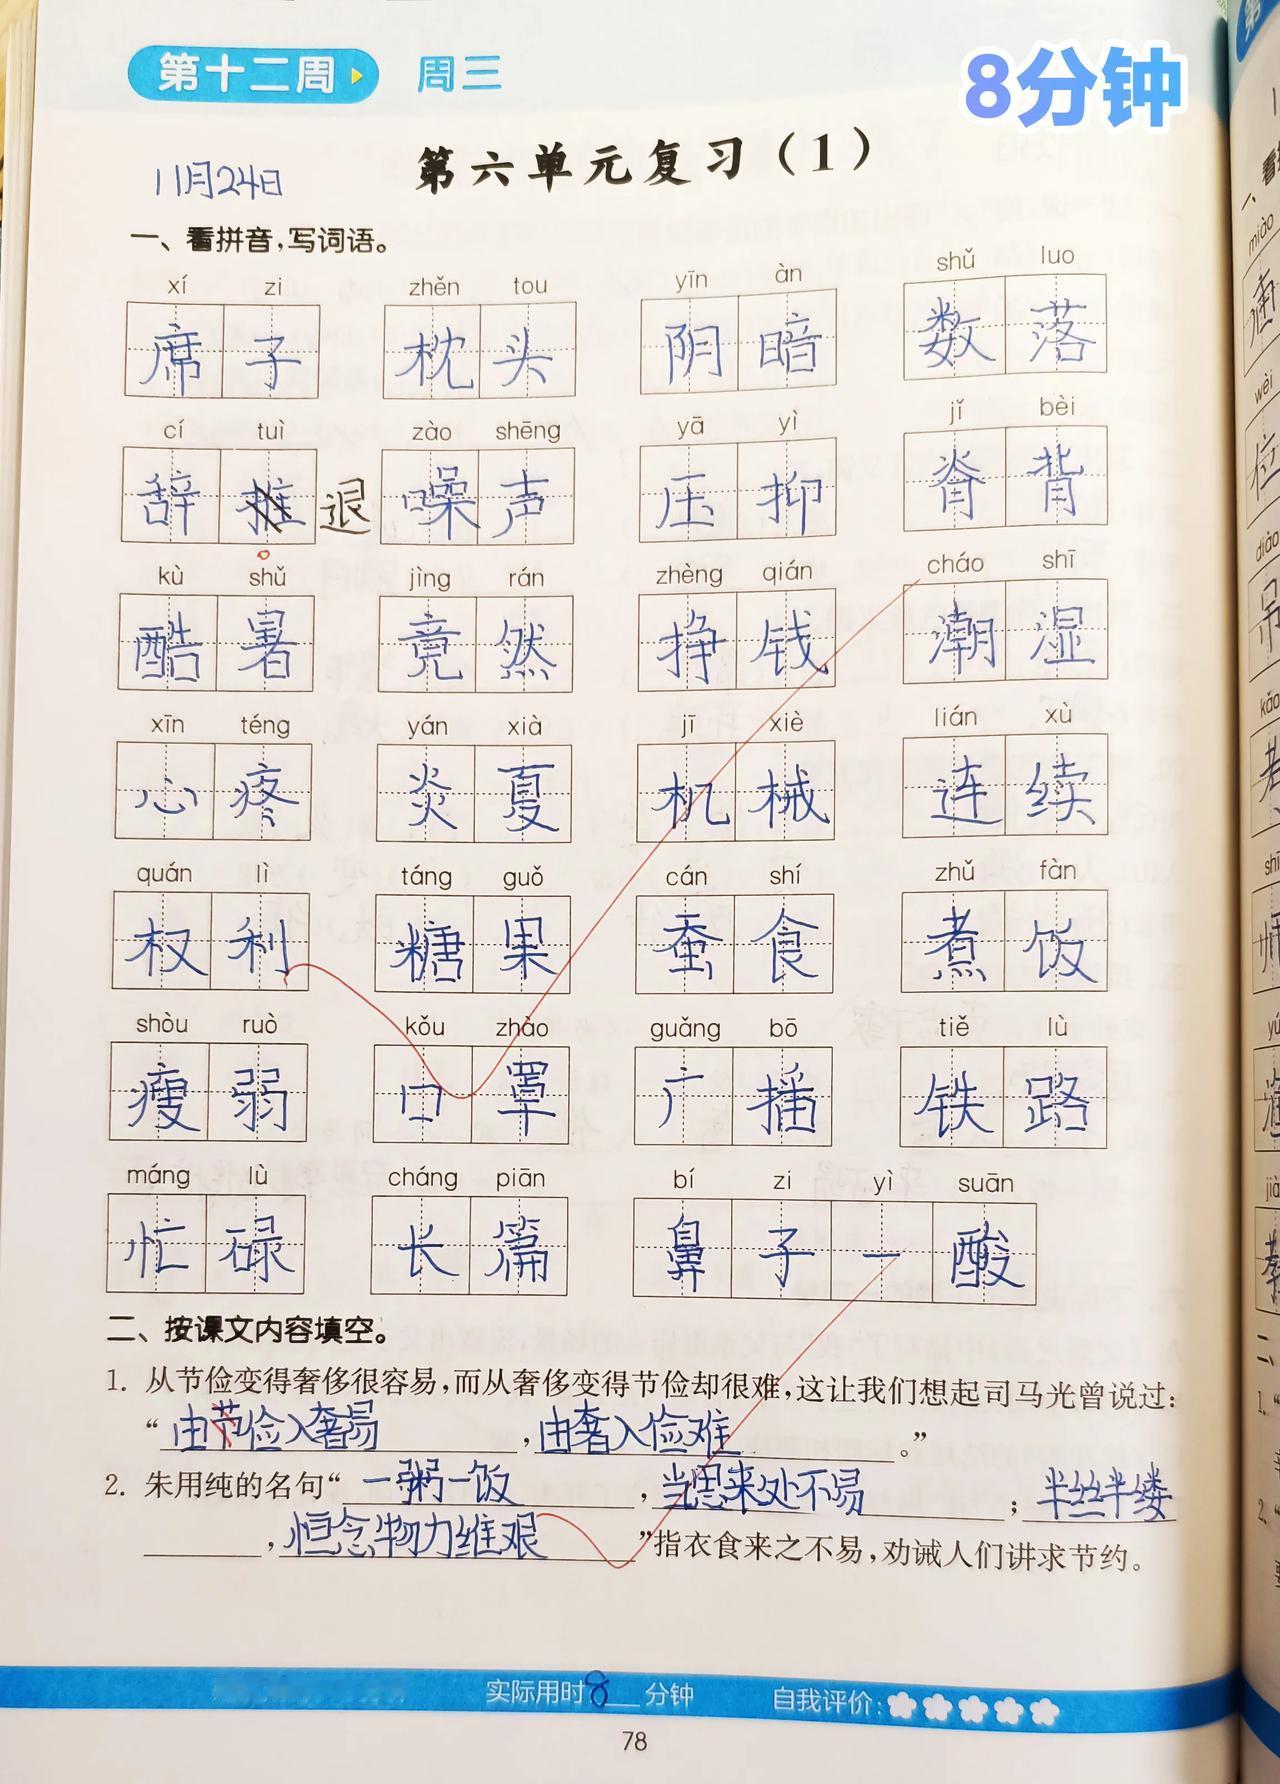 第十二周 周三 8分钟
第六单元复习（1）
11月24日
一、看拼音，写词语。
xí zi zhěn tou yīn àn shǔ luo
席子 枕头 阴暗 数落
cí tuì zào shēng yā yì jǐ bèi
辞推 退 噪声 压抑 脊背
kù shǔ jìng rán zhèng qián cháo shī
酷暑 竟然 挣钱 潮湿
xīn téng yán xià jī xiè lián xù
心疼 炎夏 机械 连续
quán lì táng guǒ cán shí zhǔ fàn
权利 糖果 蚕食 煮饭
shòu ruò kǒu zhào guǎng bō tiě lù
瘦弱 口罩 广播 铁路
máng lù cháng piān bí zi yì suān
忙碌 长篇 鼻子一酸
二、按课文内容填空。
1. 从节俭变得奢侈很容易，而从奢侈变得节俭却很难，这让我们想起司马光曾说过：
“由节俭入奢易，由奢入俭难。”
2. 朱用纯的名句“一粥一饭，当思来处不易；半丝半缕
，恒念物力维艰”指衣食来之不易，劝诫人们讲求节约。
实际用时8分钟 自我评价：
78
miào
wèi
位
diào
吊
kǎo
shī
yí
jià
二、
1.
2.